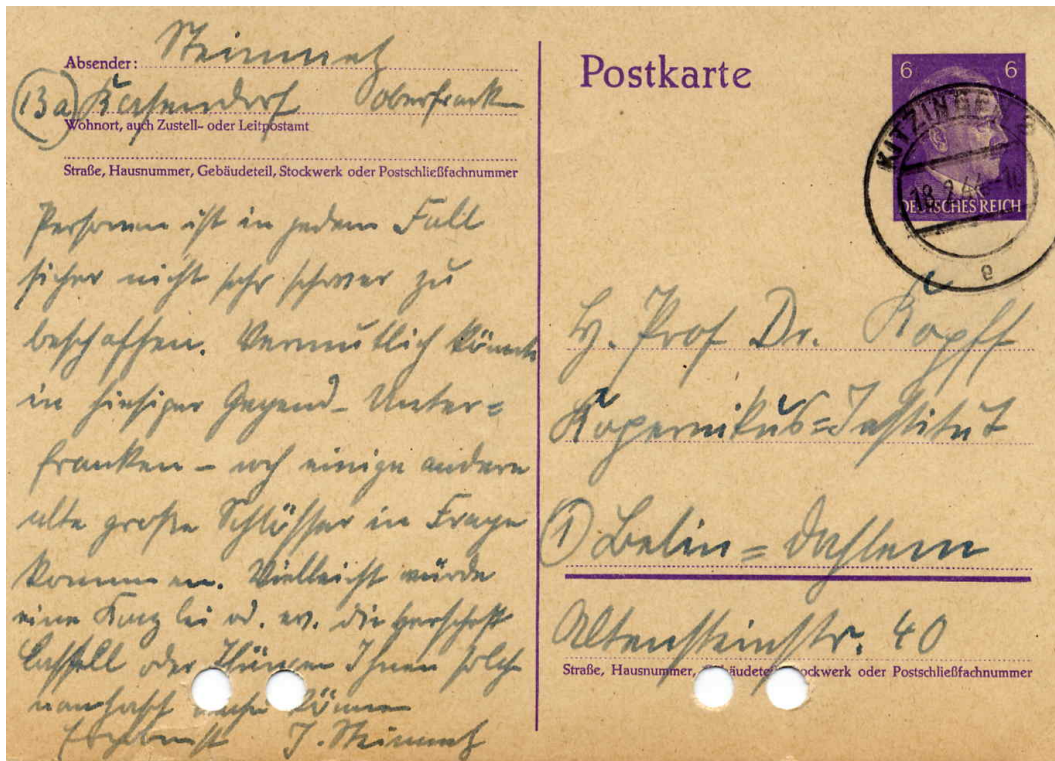 Absender: Steinmetz
(13a) Kasendorf Oberfrank
Wohnort, auch Zustell- oder Leitpostamt
Straße, Hausnummer, Gebäudeteil, Stockwerk oder Postschließfachnummer
Personen ist in jedem Fall
sicher nicht sehr schwer zu
beschaffen. Vermutlich könnte
in hiesiger Gegend – Unter=
franken – noch einige andere
alte große Schlösser in Frage
kommen. Vielleicht würde
eine Kanzlei od. ev. die Herrschaft
Castell oder Thüngen Ihnen solche
namhaft machen können
Ergebenst J. Steinmetz
Postkarte
6 6
DEUTSCHES REICH
KITZINGEN
18.2.44
e
H. Prof Dr. Kopff
Kopernikus=Institut
(1) Belin=Dahlem
Altensteinstr. 40
Straße, Hausnummer, Gebäudeteil, Stockwerk oder Postschließfachnummer